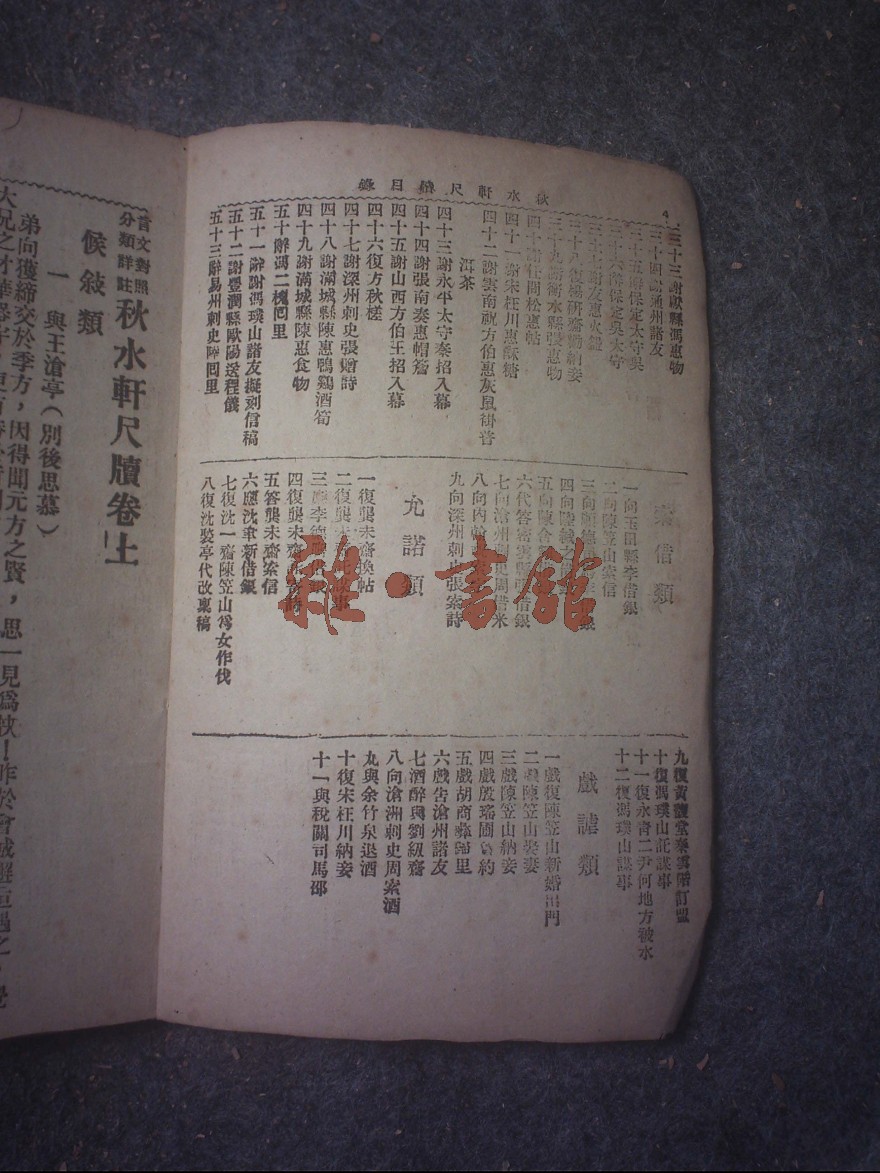 秋水軒尺牘目錄
4
三十三謝獻縣馮惠物
三十四謝通州諸友
三十五謝保定太守吳
三十六謝保定吳太守
三十七謝友惠火鏡
三十八復楊硏齋贈納妾
三十九謝衡水縣張惠物
四十謝任間松惠帖
四十一謝宋枉川惠酥糖
四十二謝雲南祝方伯惠灰鼠褂普
洱茶
四十三謝永平太守秦招入幕
四十四謝張南奏惠帽簷
四十五謝山西方伯王招入幕
四十六復方秋槎
四十七謝深州刺史張贈詩
四十八謝滿城縣陳惠鴨鷄酒筍
四十九謝滿城縣陳惠食物
五十辭馮二槐囘里
五十一辭謝馮璞山諸友擬刻信稿
五十二謝豐潤縣歐陽送程儀
五十三辭易州刺史陳囘里
索借類
一向玉田縣李借銀
二向陳笠山索信
九向深州刺史張索詩
允諾類
一復龔未齋換帖
五答龔未齋索信
六應沈聿新借銀
七復沈一齋陳笠山爲女作伐
八復沈嫯亭代改稟稿
九復黃體堂秦雲階訂盟
十復馮璞山託謀事
十一復永淸二尹何地方被水
十二復馮璞山謀事
戲謔類
一戲復陳笠山新婚出門
二戲陳笠山娶妻
三戲陳笠山納妾
四戲殷瑤圃負約
五戲胡商彝歸里
六戲告滄州諸友
七酒醉與劉紉齋
八向滄洲刺史周索酒
九與余竹泉退酒
十復宋枉川納妾
十一與稅關司馬邵
雜·書館
言文對照
分類詳註
秋水軒尺牘卷上
候敍類
一　與王滄亭（別後思慕）
弟向獲締交於季方，因得聞元方之賢，思一見爲快！昨於會城邂逅遇之，覺